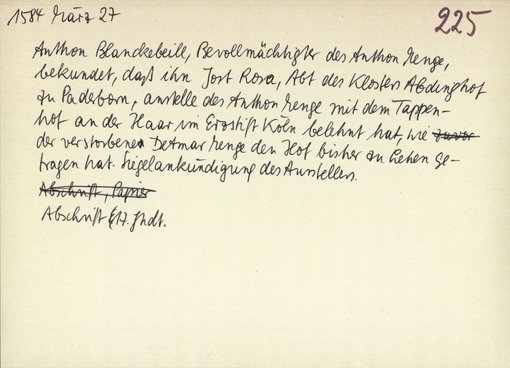 1584 März 27
225
Anthon Blanckebeill, Bevollmächtigter des Anthon Menge,
bekundet, daß ihn Jost Rosa, Abt des Klosters Abdinghof
zu Paderborn, anstelle des Anthon Menge mit dem Tappen-
hof an der Haar im Erzstift Köln belehnt hat, wie zuvor
der verstorbene Detmar Menge den Hof bisher zu Lehen ge-
tragen hat. Siegelankündigung des Ausstellers.
Abschrift, Papier
Abschrift 17. Jhdt.